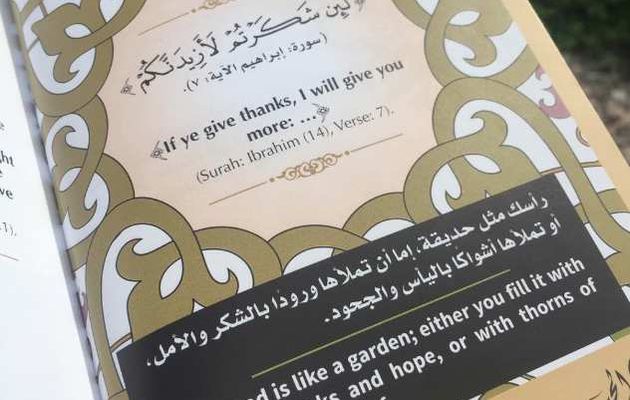 ﴿لَئِن شَكَرْتُمْ لَأَزِيدَنَّكُمْ﴾
(سورة: إبراهيم الآية: ٧).
﴾If ye give thanks, I will give you
more: ...﴿
(Surah: Ibrahim (14), Verse: 7).
رأسك مثل حديقة. إما أن تملأها ورودًا بالشكر والأمل،
أو تملأها أشواكًا باليأس والجحود.
is like a garden; either you fill it with
and hope, or with thorns of